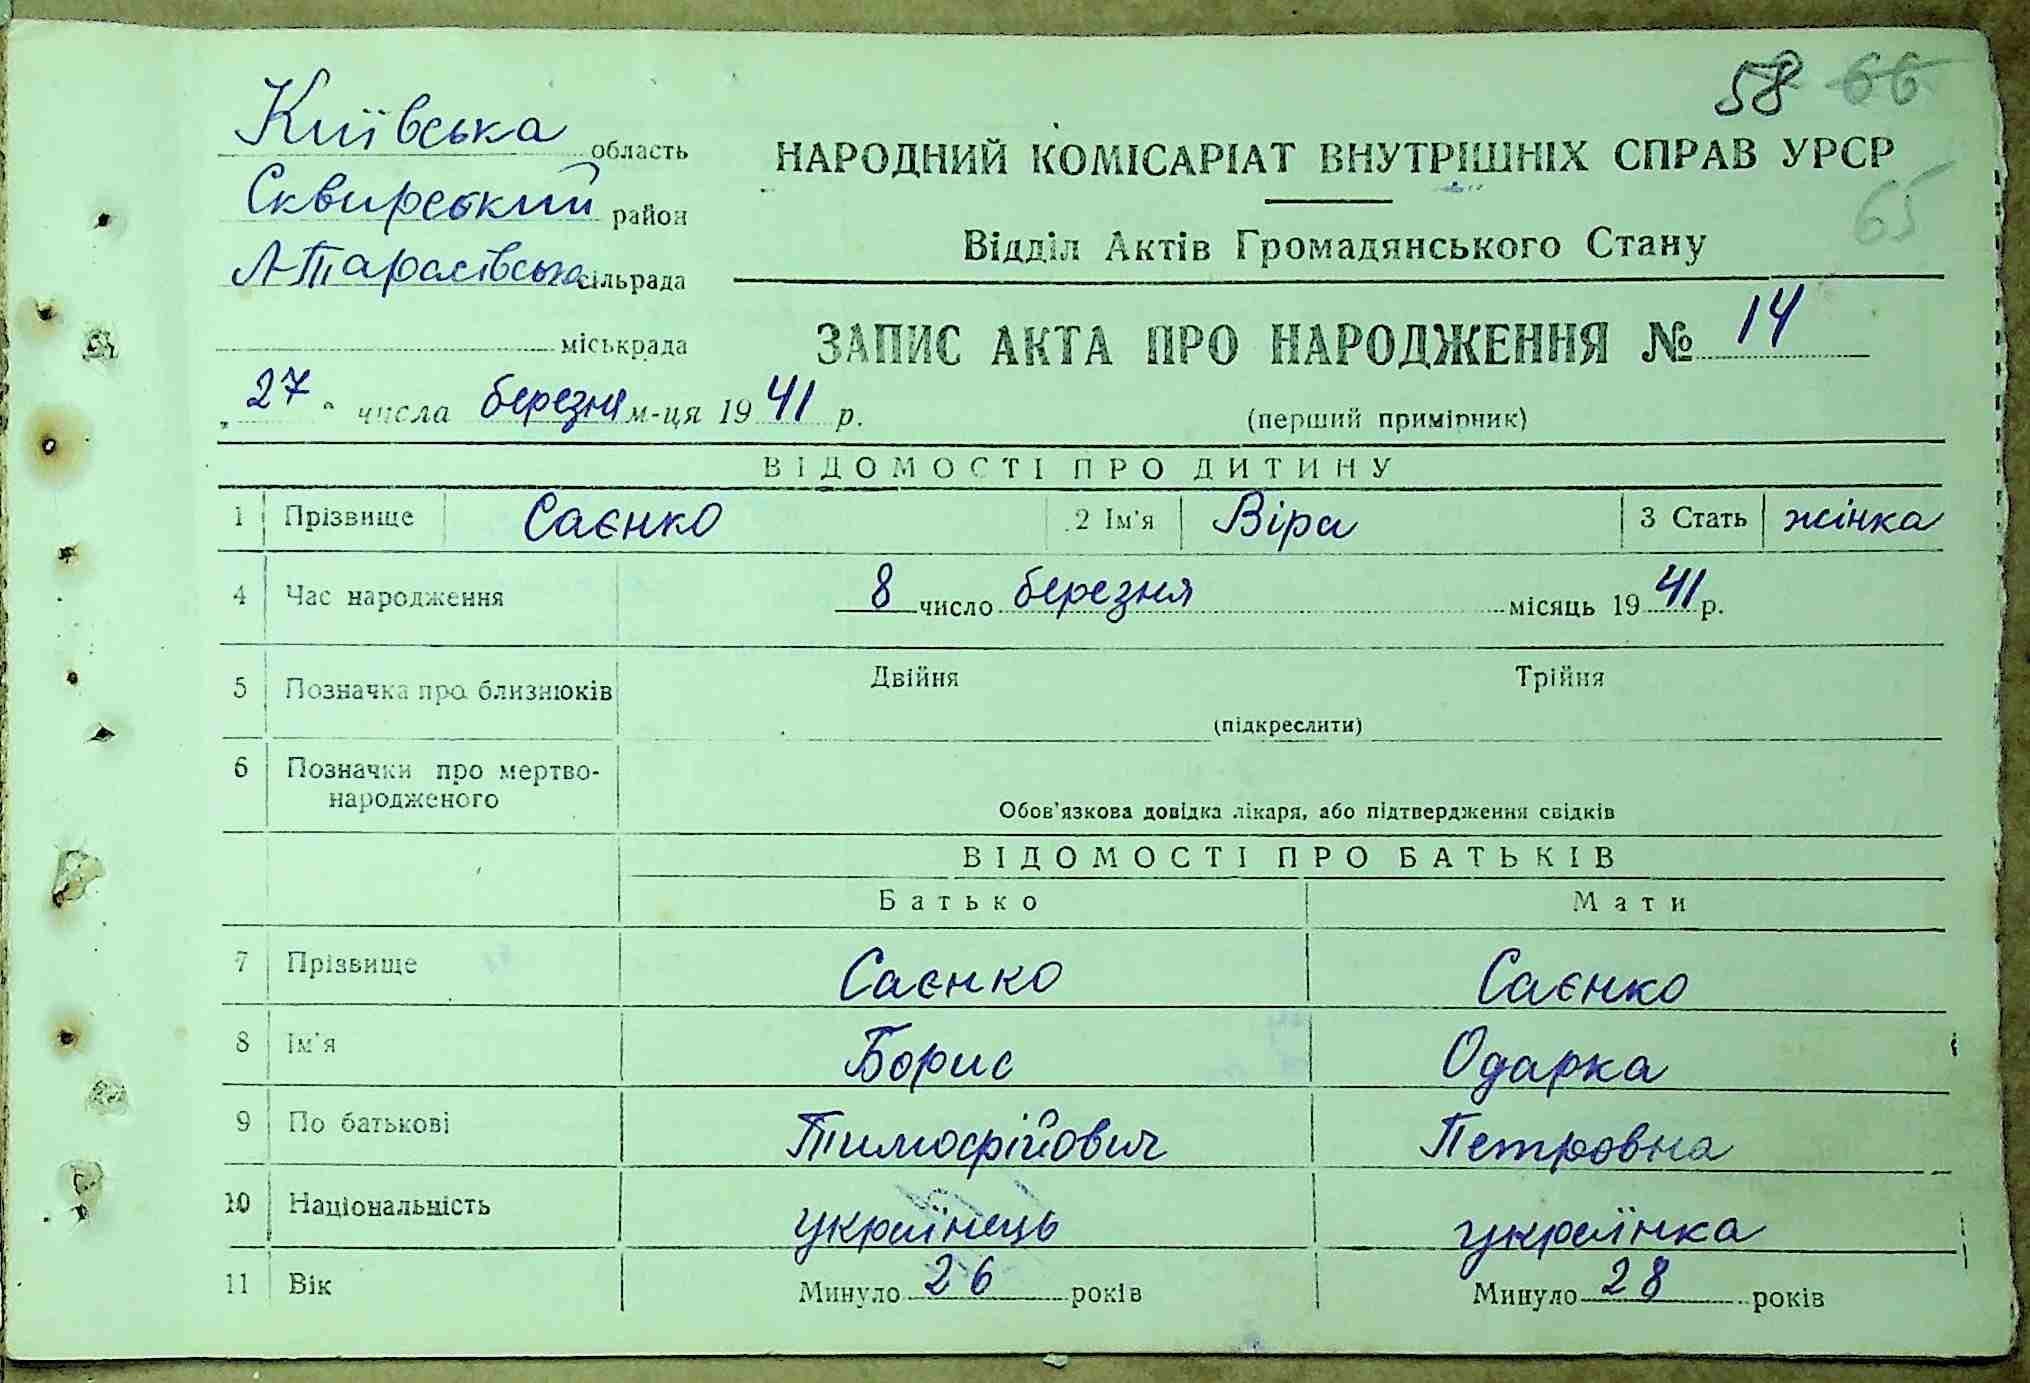 58 66
65
Київська область
Сквирський район
Л-Тарасівська сільрада
міськрада
НАРОДНИЙ КОМІСАРІАТ ВНУТРІШНІХ СПРАВ УРСР
Відділ Актів Громадянського Стану
ЗАПИС АКТА ПРО НАРОДЖЕННЯ № 14
„ 27 " числа березня м-ця 1941 р.
(перший примірник)
ВІДОМОСТІ ПРО ДИТИНУ
1 Прізвище Саєнко 2 Ім'я Віра 3 Стать жінка
4 Час народження 8 число березня місяць 1941 р.
5 Позначка про близнюків Двійня Трійня
(підкреслити)
6 Позначки про мертво-
народженого
Обов'язкова довідка лікаря, або підтвердження свідків
ВІДОМОСТІ ПРО БАТЬКІВ
Батько Мати
7 Прізвище Саєнко Саєнко
8 Ім'я Борис Одарка
9 По батькові Тимофійович Петровна
10 Національність українець українка
11 Вік Минуло 26 років Минуло 28 років